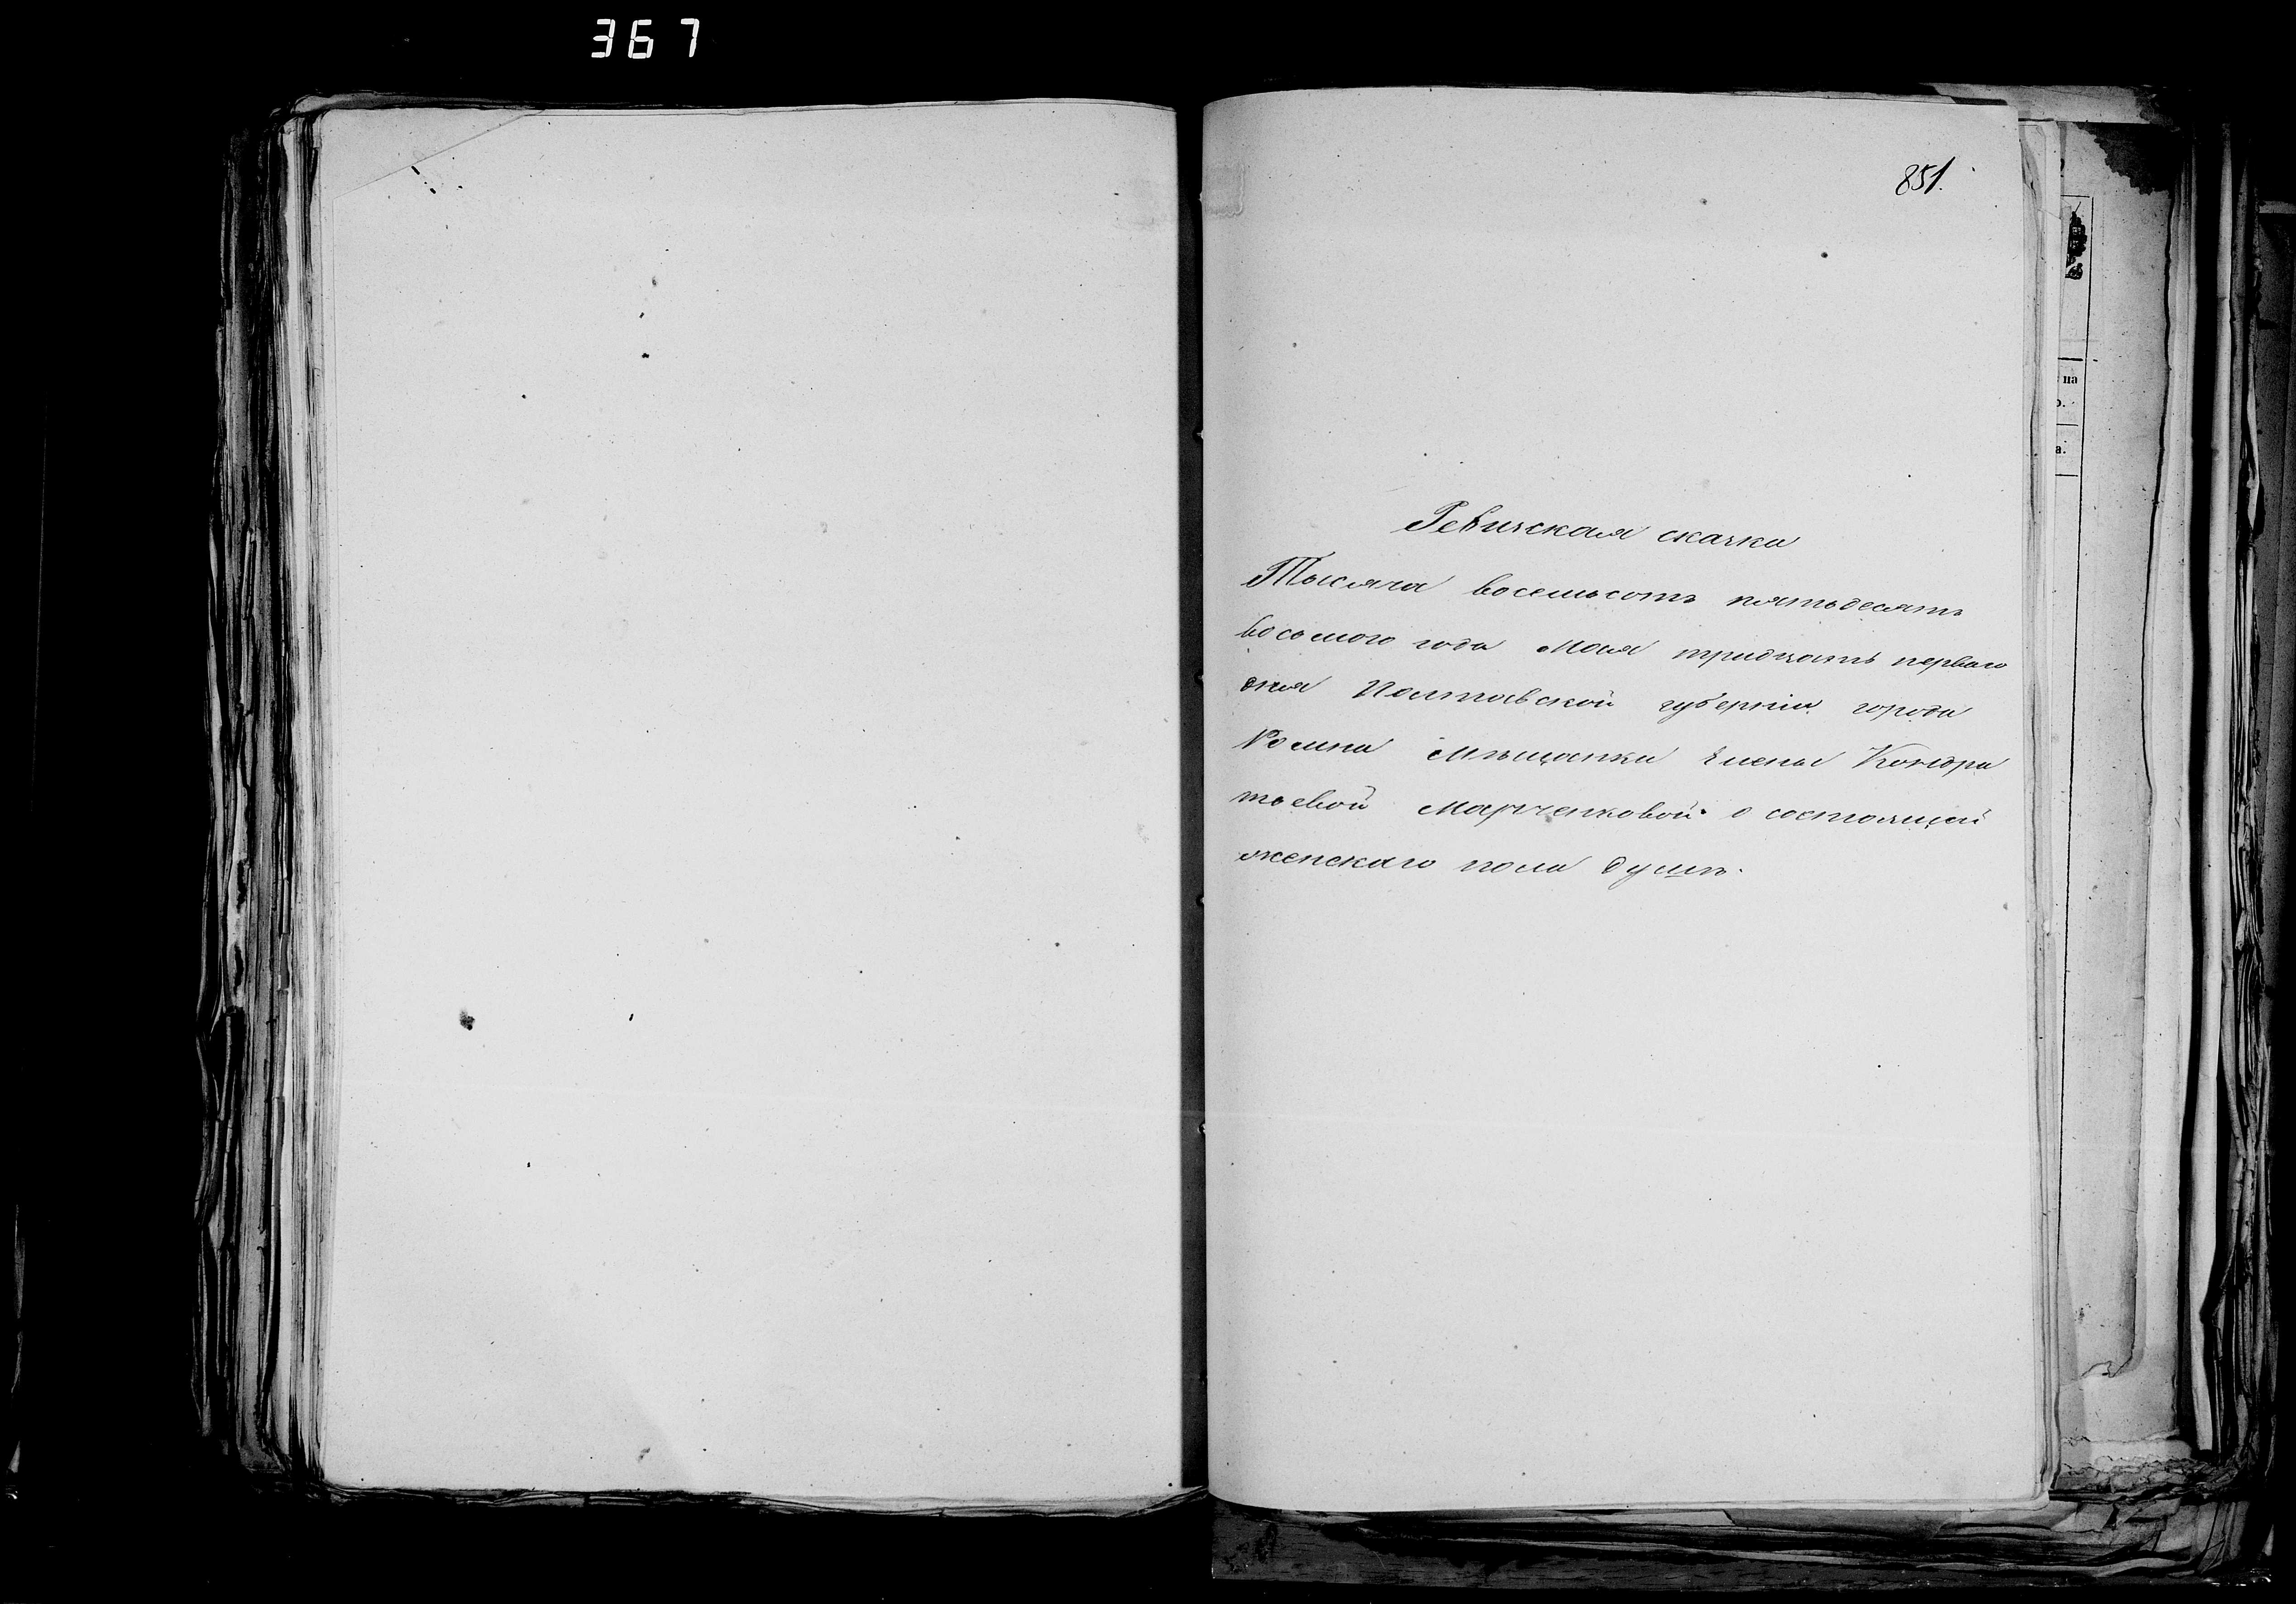 367
851.
Ревизская сказка
Тысяча восемьсотъ пятьдесятъ
восьмого года Мая тридцать перваго
дня Полтавской губерніи города
Ромна Мѣщанки Елены Кондра
тьевой Марченковой о состоящей
женскаго пола душѣ.
на
о.
а.